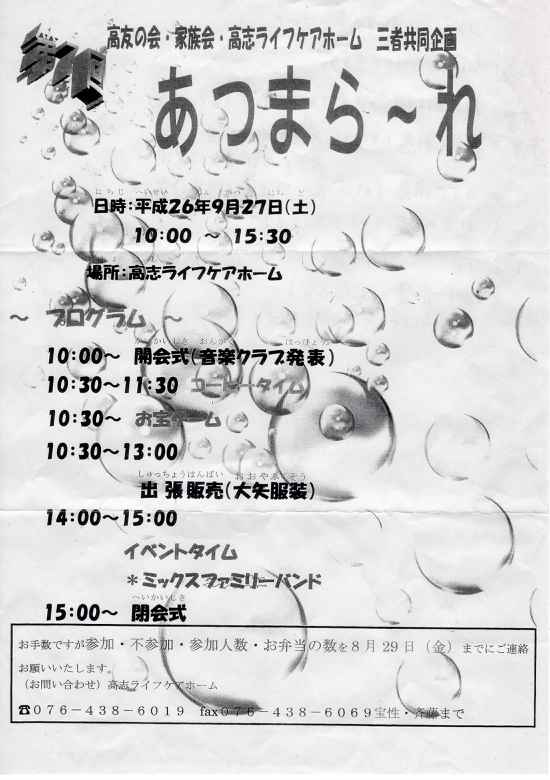 高友の会・家族会・高志ライフケアホーム 三者共同企画
あつまら～れ
日時：平成26年9月27日（土）
10:00 ～ 15:30
場所：高志ライフケアホーム
～ プログラム ～
10:00～ 開会式（音楽クラブ発表）
10:30～11:30 コーヒータイム
10:30～ お宝ゲーム
10:30～13:00
しゅっちょうはんばい
出張販売（大矢服装）
14:00～15:00
イベントタイム
＊ミックスファミリーバンド
へいかいしき
15:00～ 閉会式
お手数ですが参加・不参加・参加人数・お弁当の数を8月29日（金）までにご連絡
お願いいたします。
（お問い合わせ）高志ライフケアホーム
☎076－438－6019 fax076－438－6069宝性・斉藤まで